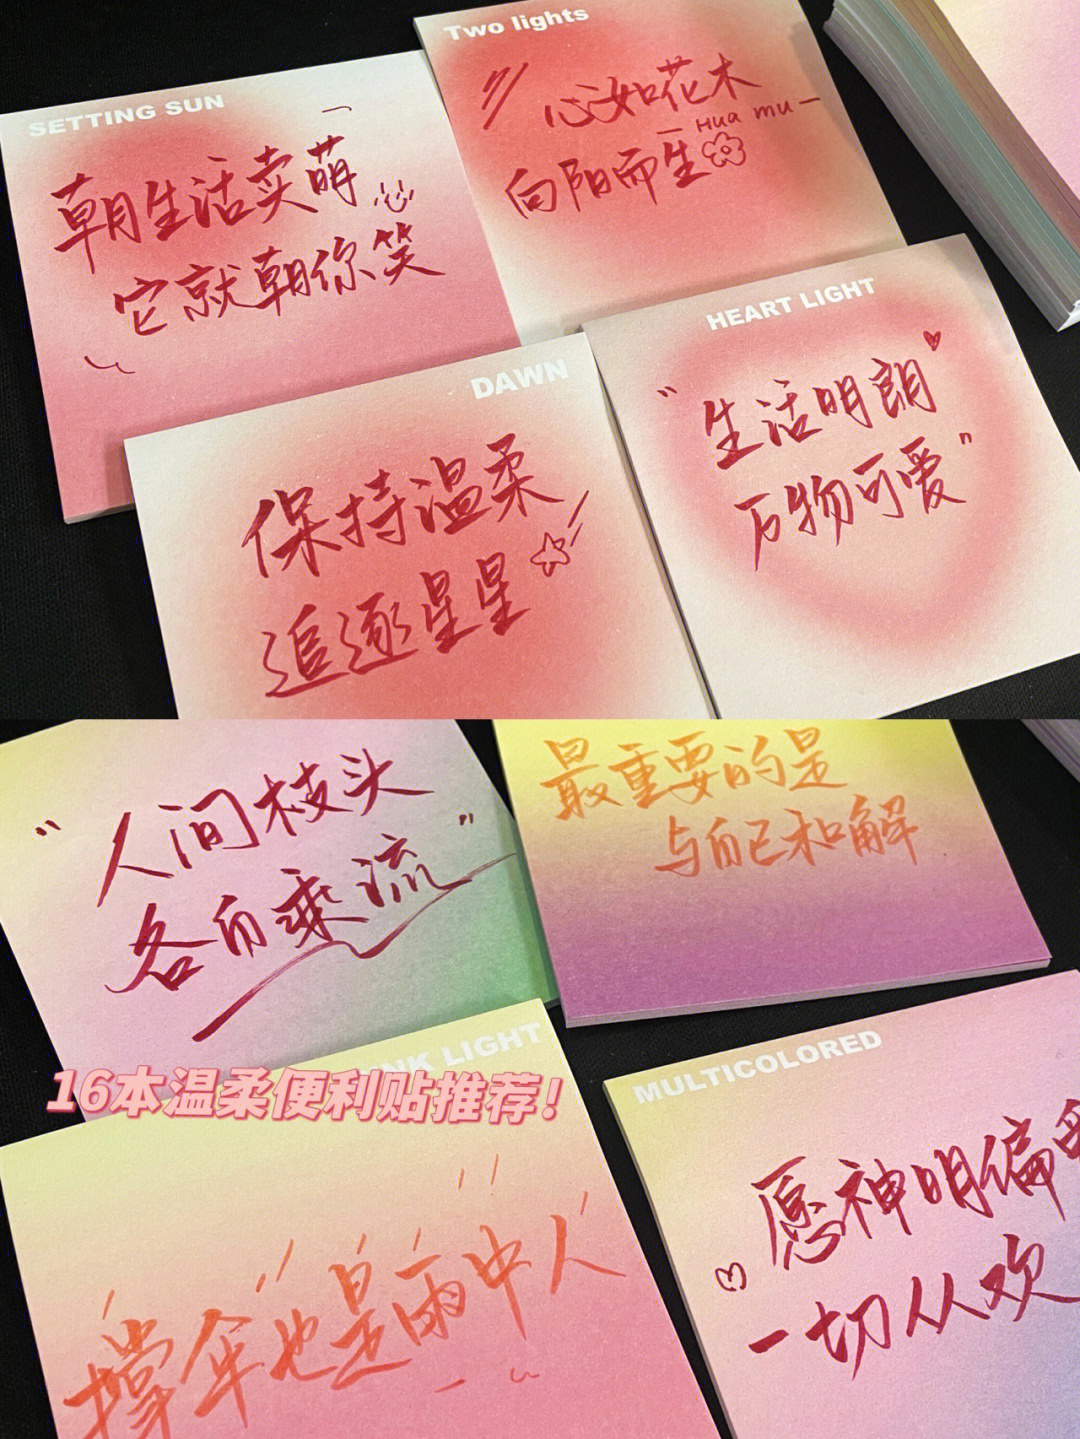 SETTING SUN
朝生活卖萌
它就朝你笑
Two lights
心如花木
Hua mu
向阳而生
HEART LIGHT
"生活明朗
万物可爱"
DAWN
保持温柔
追逐星星
"人间枝头
各自乘流"
最重要的是
与自己和解
NK LIGHT
16本温柔便利贴推荐!
撑伞也是雨中人
MULTICOLORED
愿神明偏
一切从欢